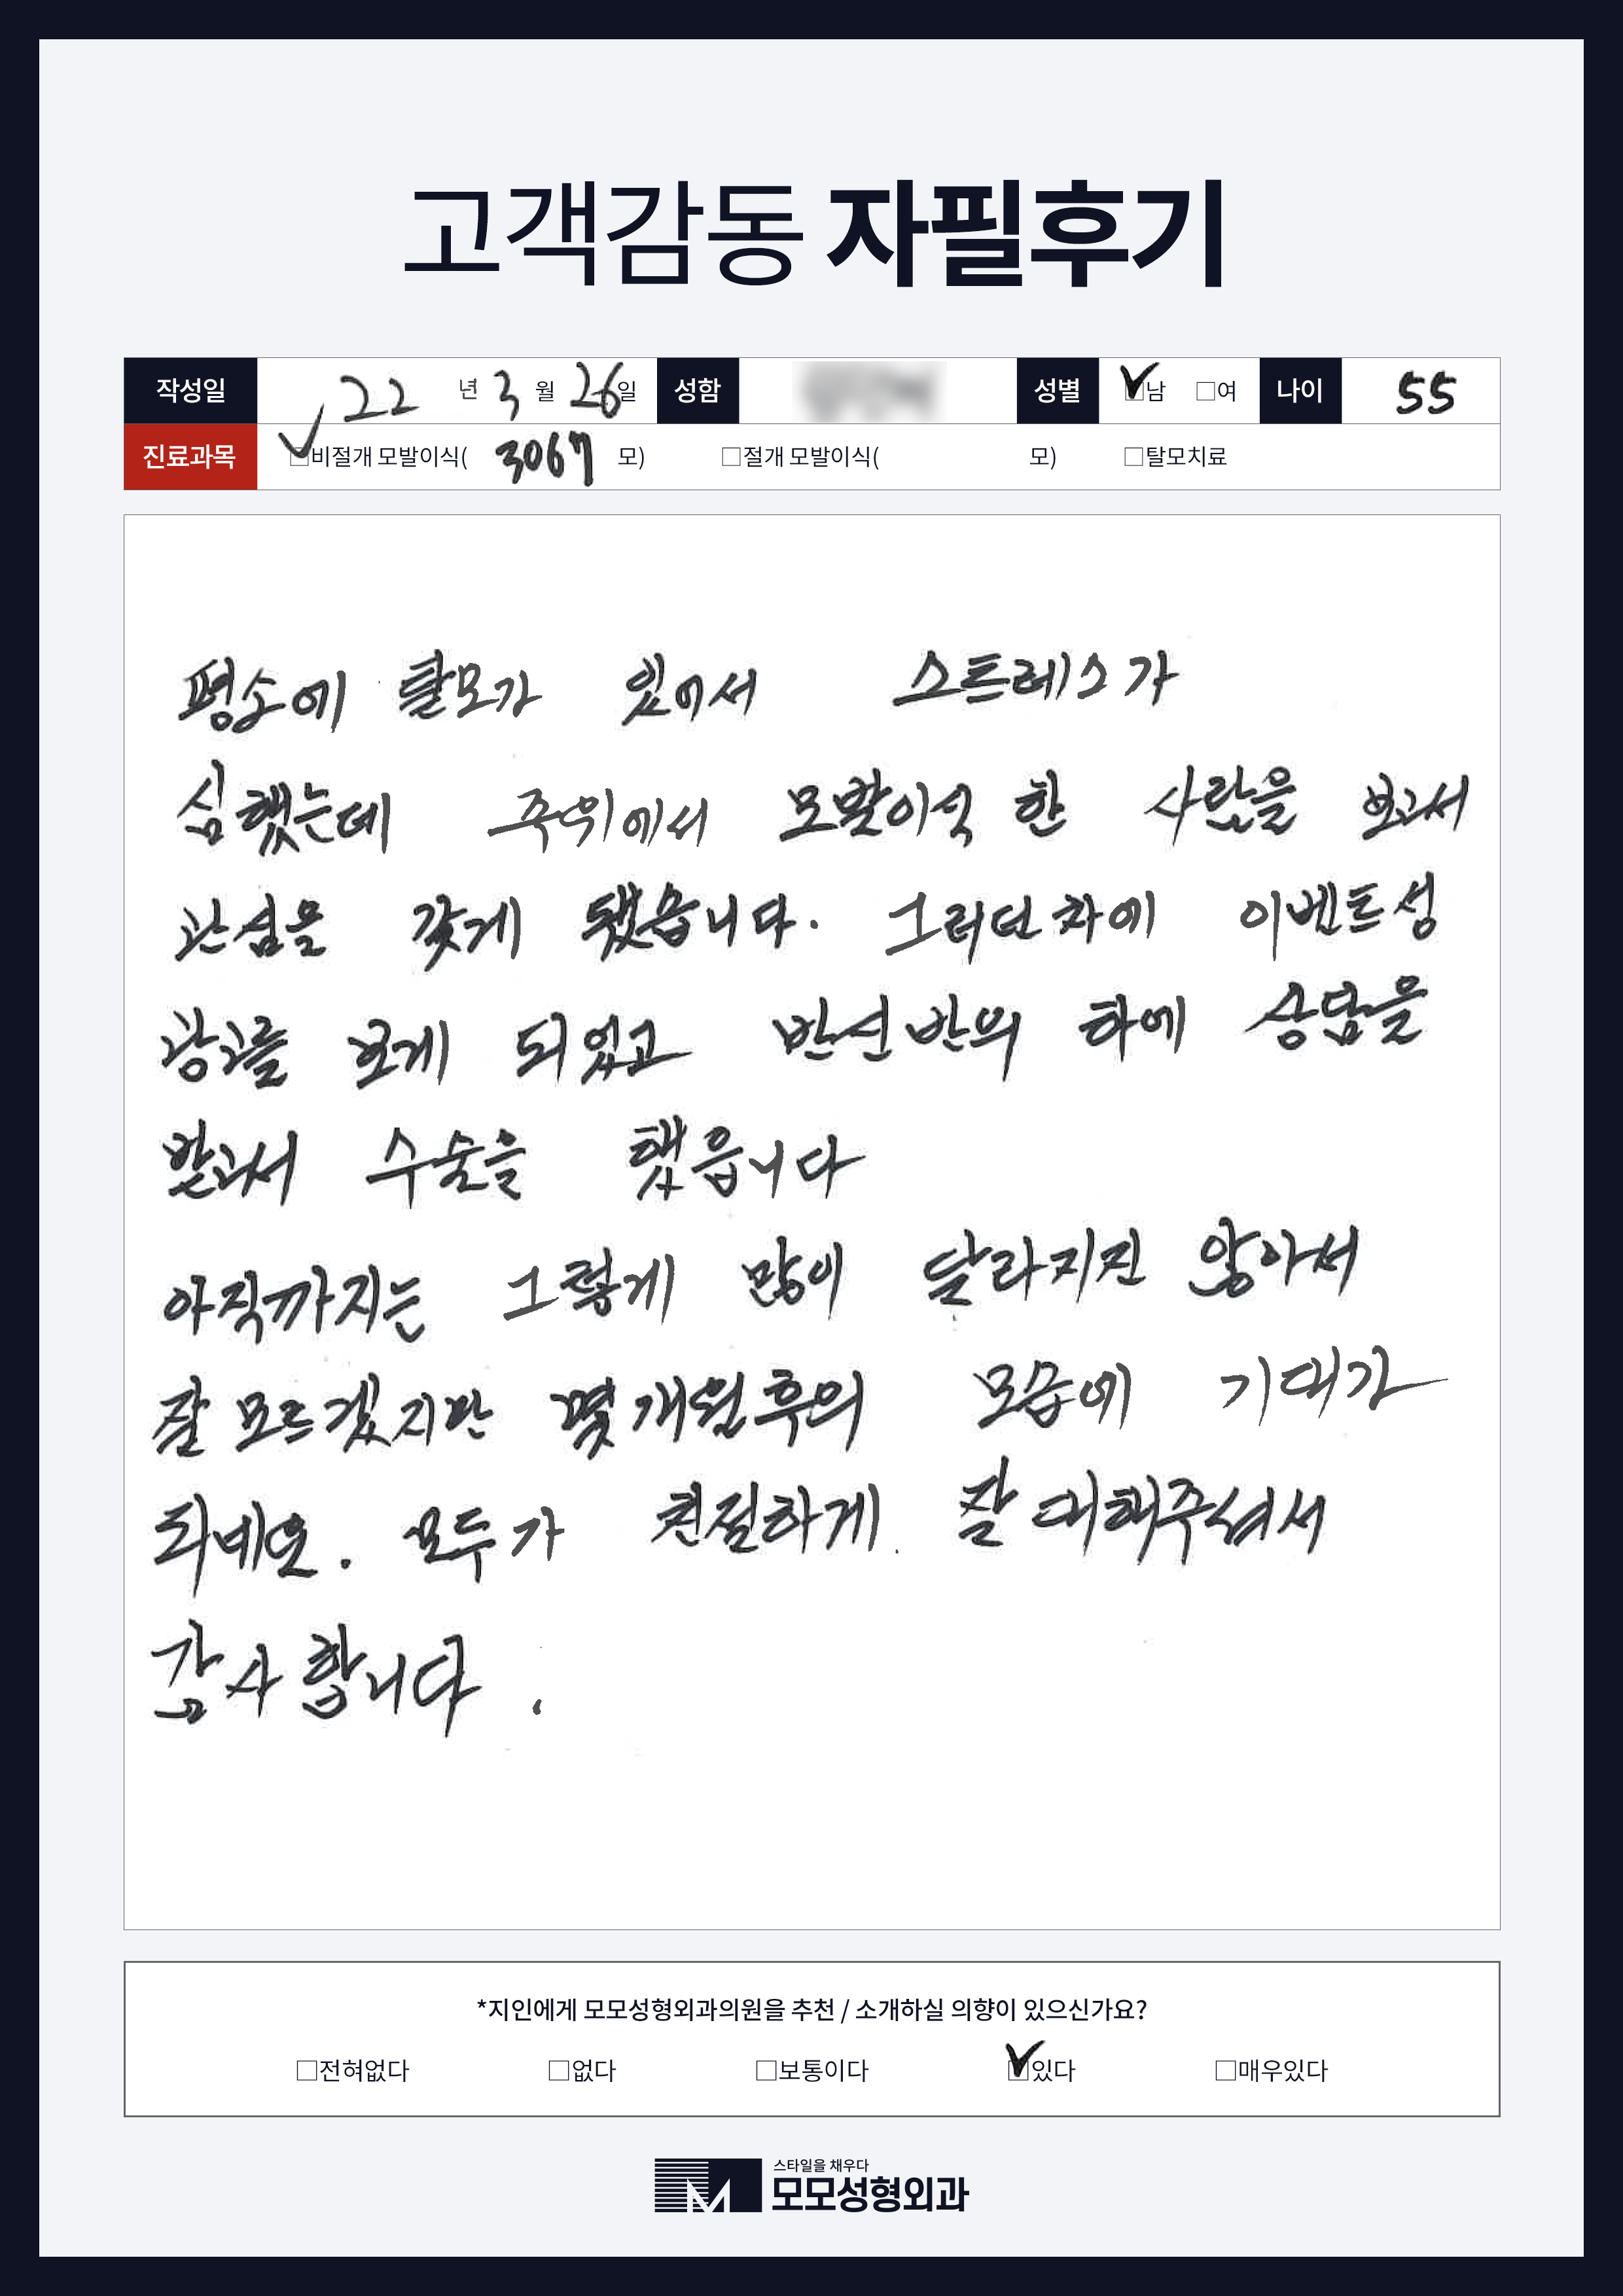 고객감동 자필후기
작성일 22 년 3 월 26 일 성함 성별 ☑남 □여 나이 55
진료과목 ☑비절개 모발이식( 3067 모) □절개 모발이식( 모) □탈모치료
평소에 탈모가 있어서 스트레스가
심했는데 주위에서 모발이식 한 사람을 보고서
관심을 갖게 됐습니다. 그러던차에 이벤트성
광고를 보게 되었고 반신반의 하에 상담을
받고서 수술을 했읍니다
아직까지는 그렇게 많이 달라지진 않아서
잘 모르겠지만 몇개월후의 모습에 기대가
되네요. 모두가 친절하게. 잘 대해주셔서
감사합니다.
*지인에게 모모성형외과의원을 추천 / 소개하실 의향이 있으신가요?
□전혀없다 □없다 □보통이다 ☑있다 □매우있다
스타일을 채우다
모모성형외과